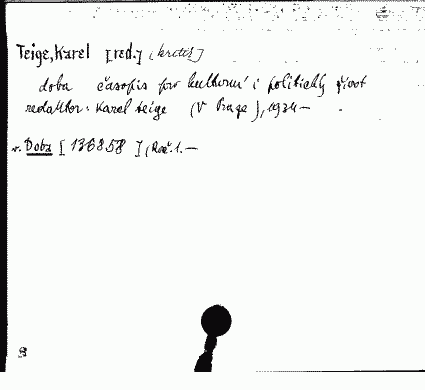 Teige, Karel [red.]
doba časopis pro kulturní i politický život
redaktor: Karel teige (V Praze), 1934—
v. Doba [136858] (Roč. 1.—